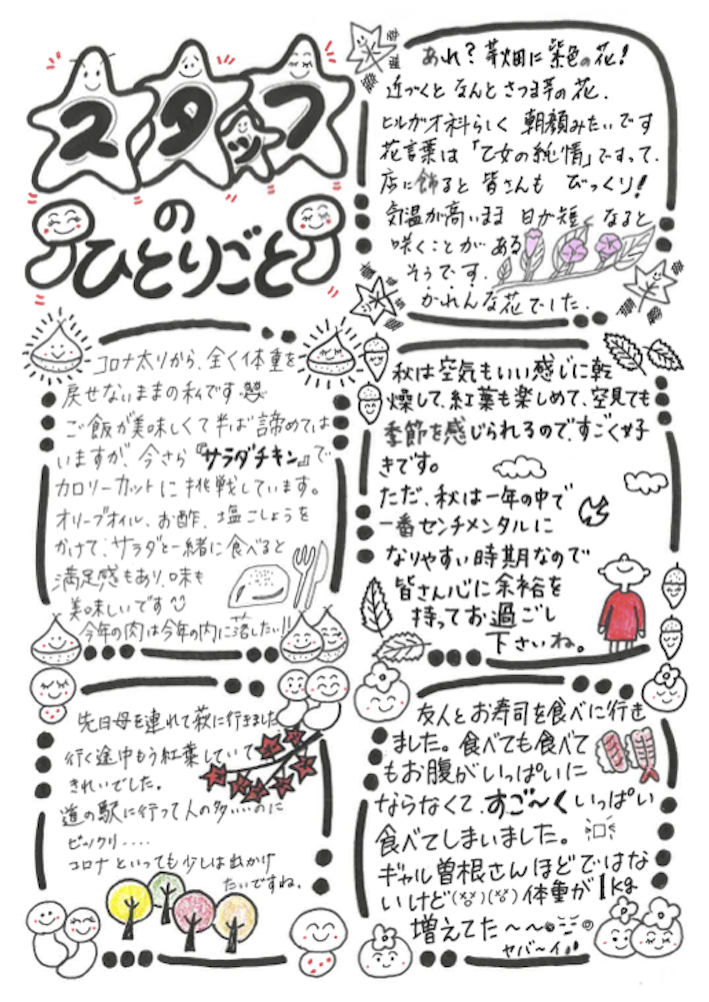 スタッフ
の
ひとりごと
あれ？芋畑に紫色の花！
近づくとなんとさつま芋の花.
ヒルガオ科らしく 朝顔みたいです
花言葉は「乙女の純情」ですって.
店に飾ると 皆さんも びっくり！
気温が高いまま 日が短くなると
咲くことがある
そうです.
かれんな花でした.
コロナ太りから、全く体重を
戻せないままの私です
ご飯が美味しくて半ば諦めては
いますが、今さら『サラダチキン』で
カロリーカットに挑戦しています。
オリーブオイル、お酢、塩こしょうを
かけて、サラダと一緒に食べると
満足感もあり、味も
美味しいです
今年の肉は今年の内に落したい!!
秋は空気もいい感じに乾
燥して、紅葉も楽しめて、空見ても
季節を感じられるので、すごく好
きです。
ただ、秋は一年の中で
一番センチメンタルに
なりやすい時期なので
皆さん心に余裕を
持ってお過ごし
下さいね。
先日母を連れて萩に行きました
行く途中もう紅葉していて
きれいでした。
道の駅に行って人の多いのに
ビックリ.....
コロナといっても少しは出かけ
たいですね。
友人とお寿司を食べに行き
ました。食べても食べて
もお腹がいっぱいに
ならなくて、すご〜くいっぱい
食べてしまいました。
ギャル曽根さんほどではな
いけど 体重が1kg
増えてた〜〜
ヤバーイ!!